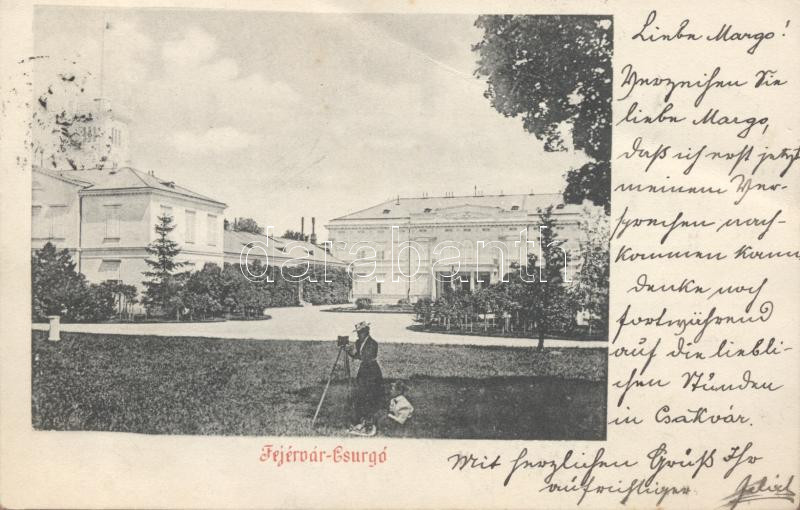 Liebe Margo!
Verzeihen Sie
liebe Margo,
daß ich erst jetzt
meinem Ver-
sprechen nach-
kommen kann
denke noch
fortwährend
auf die liebli-
chen Stunden
in Csakvár.
Mit herzlichen Gruß Ihr
aufrichtiger
darabanth
Fejérvár-Csurgó